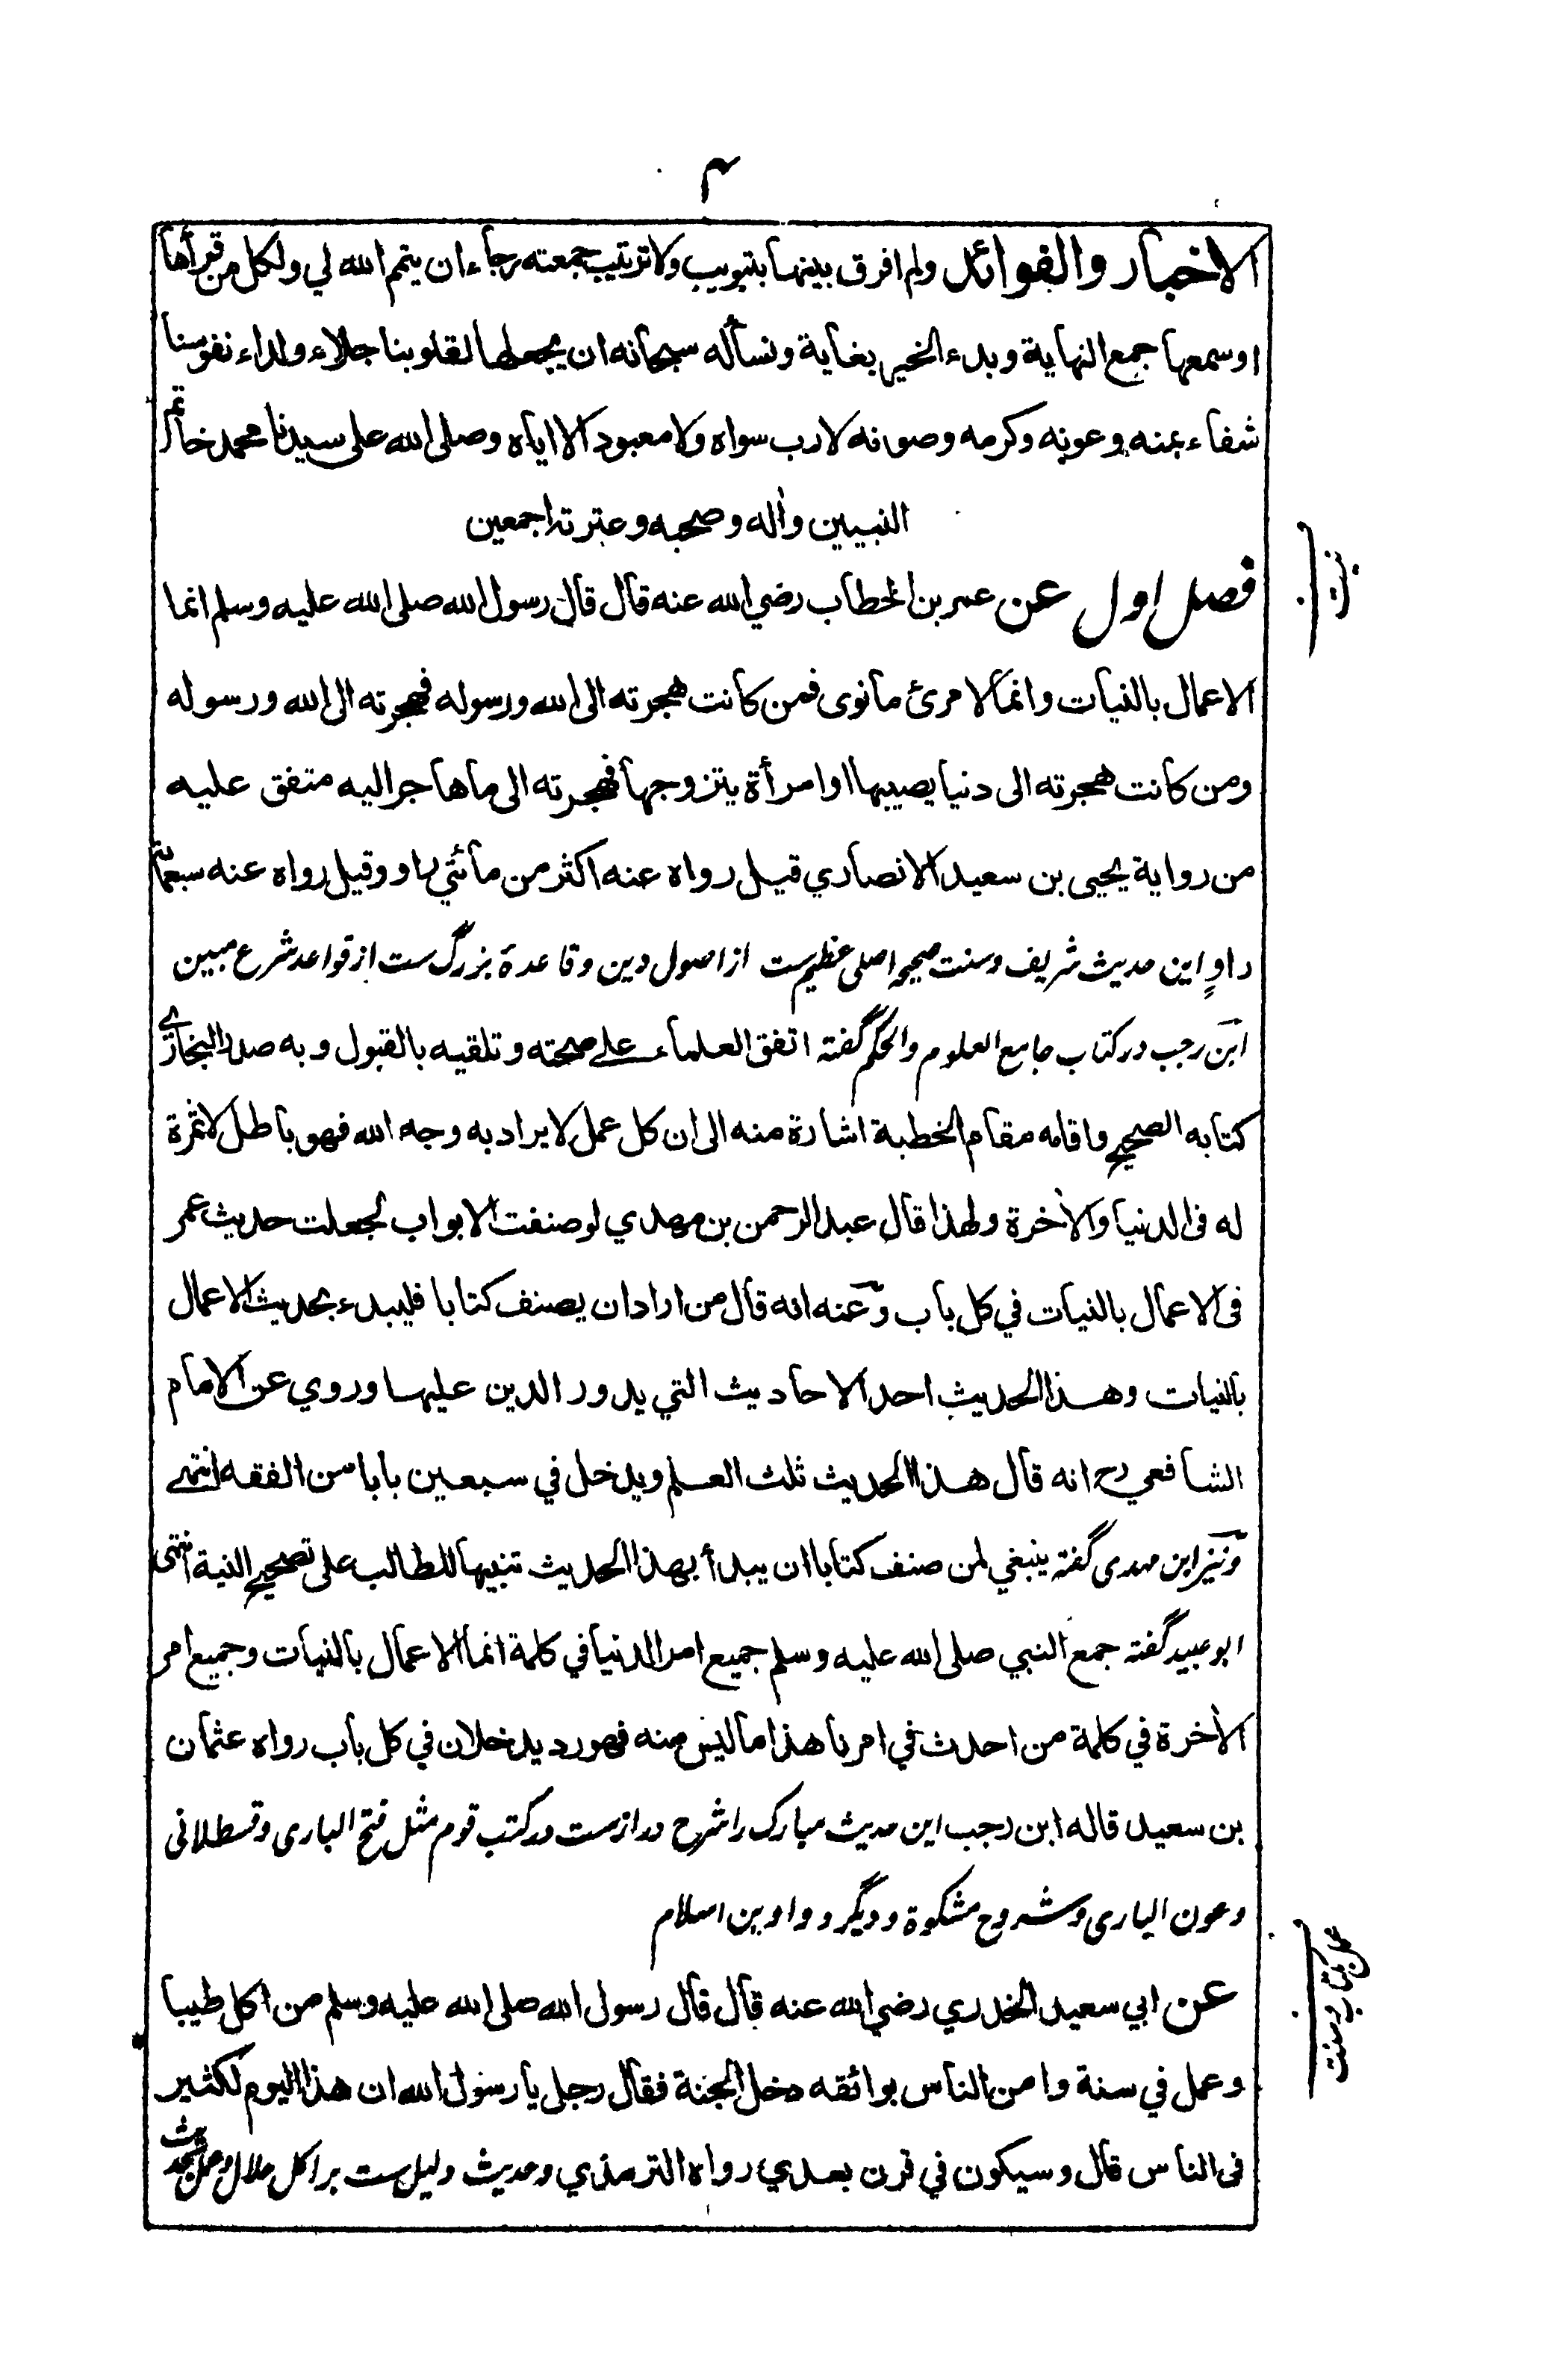 ۴
الاخبار والفوائد ولم افرق بينها بتبويب ولا ترتيب جمعته رجاء ان يتمم الله لي ولكل من قرأها
او سمعها جمع النهاية وبدء الخير بغاية ونسأله سبحانه ان يجعلها لقلوبنا جلاء ولداء نفوسنا
شفاء بمنه وعونه وكرمه وصونه لارب سواه ولا معبود الا اياه وصلى الله على سيدنا محمد خاتم
النبيين وأله وصحبه وعترته اجمعين
فصل اول عن عمر بن الخطاب رضي الله عنه قال قال رسول الله صلى الله عليه وسلم انما
نیت
الاعمال بالنيات وانما لامرئ ما نوى فمن كانت هجرته الى الله ورسوله فهجرته الى الله ورسوله
ومن كانت هجرته الى دنيا يصيبها او امرأة يتزوجها فهجرته الى ما هاجر اليه متفق عليه
من رواية يحيى بن سعيد الانصاري قيل رواه عنه اكثر من مأئتي راو وقيل رواه عنه سبعمائة
راوٍ این حدیث شریف و سنت صحیحه اصلی عظیم ست از اصول دین و قاعدۀ بزرگ ست از قواعد شرع مبین
ابن رجب در کتاب جامع العلوم والحکم گفته اتفق العلماء على صحته وتلقيه بالقبول وبه صدر البخاري
كتابه الصحيح واقامه مقام الخطبة اشارة منه الى ان كل عمل لا يراد به وجه الله فهو باطل لا ثمرة
له فى الدنيا والأخرة ولهذا قال عبد الرحمن بن مهدي لو صنفت الابواب لجعلت حديث عمر
فى الاعمال بالنيات في كل باب وعنه انه قال من اراد ان يصنف كتابا فليبدء بحديث الاعمال
بالنيات وهذا الحديث احد الاحاديث التي يدور الدين عليها وروي عن الامام
الشافعي رح انه قال هذا الحديث ثلث العلم ويدخل في سبعين بابا من الفقه انتهى
ونیز ابن مهدی گفته ينبغي لمن صنف كتابا ان يبدأ بهذا الحديث تنبيها للطالب على تصحيح النية انتهى
ابو عبید گفته جمع النبي صلى الله عليه وسلم جميع امر الدنيا في كلمة انما الاعمال بالنيات وجميع امر
الأخرة في كلمة من احدث في امرنا هذا ما ليس منه فهو رد يدخلان في كل باب رواه عثمان
بن سعيد قاله ابن رجب این حدیث مبارک را شرح دراز ست در کتب قوم مثل فتح الباری و قسطلانی
و عون الباری و شروح مشکوة و دیگر دواوین اسلام
عن ابي سعيد الخدري رضي الله عنه قال قال رسول الله صلى الله عليه وسلم من اكل طيبا
عمل بکتاب و سنت
وعمل في سنة وامن الناس بوائقه دخل الجنة فقال رجل يا رسول الله ان هذا اليوم لكثير
فى الناس قال وسيكون في قرن بعدي رواه الترمذي و حدیث دلیل ست بر اکل حلال و عمل بحدیث